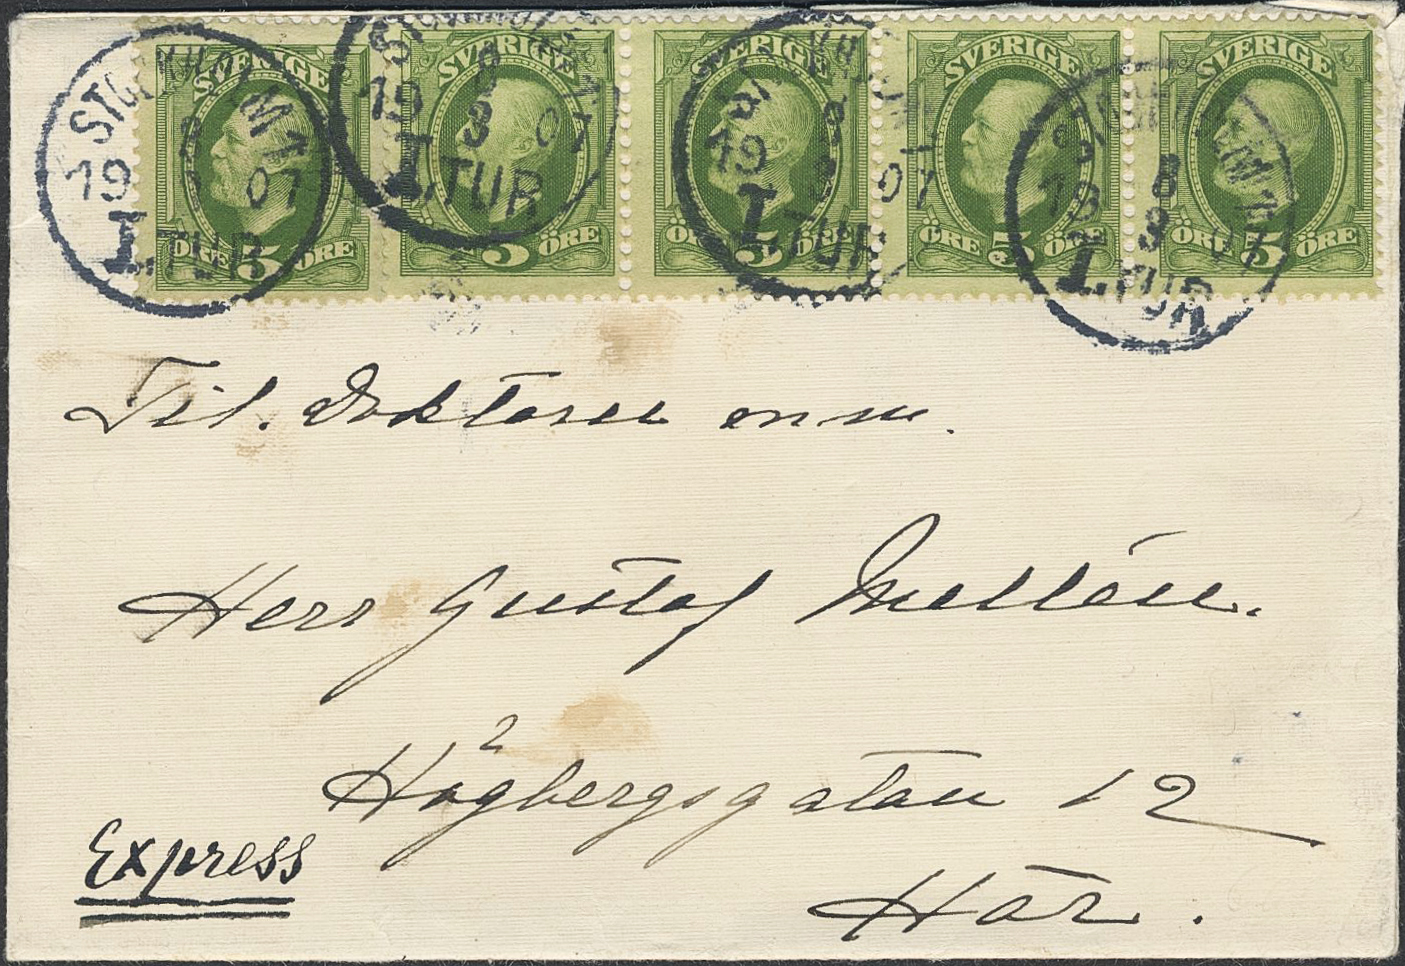 SVERIGE SVERIGE SVERIGE SVERIGE SVERIGE
ÖRE 5 ÖRE ÖRE 5 ÖRE ÖRE 5 ÖRE ÖRE 5 ÖRE ÖRE 5 ÖRE
STOCKHOLM 1
19 07
1.TUR
STOCKHOLM 1
8
19 3 07
1.TUR
STOCKHOLM 1
8
19 3 07
1.TUR
STOCKHOLM 1
8
19 3 07
1.TUR
Til. Doktoren m.m.
Herr Gustaf Mellén.
Högbergsgatan 12
Express
Här.